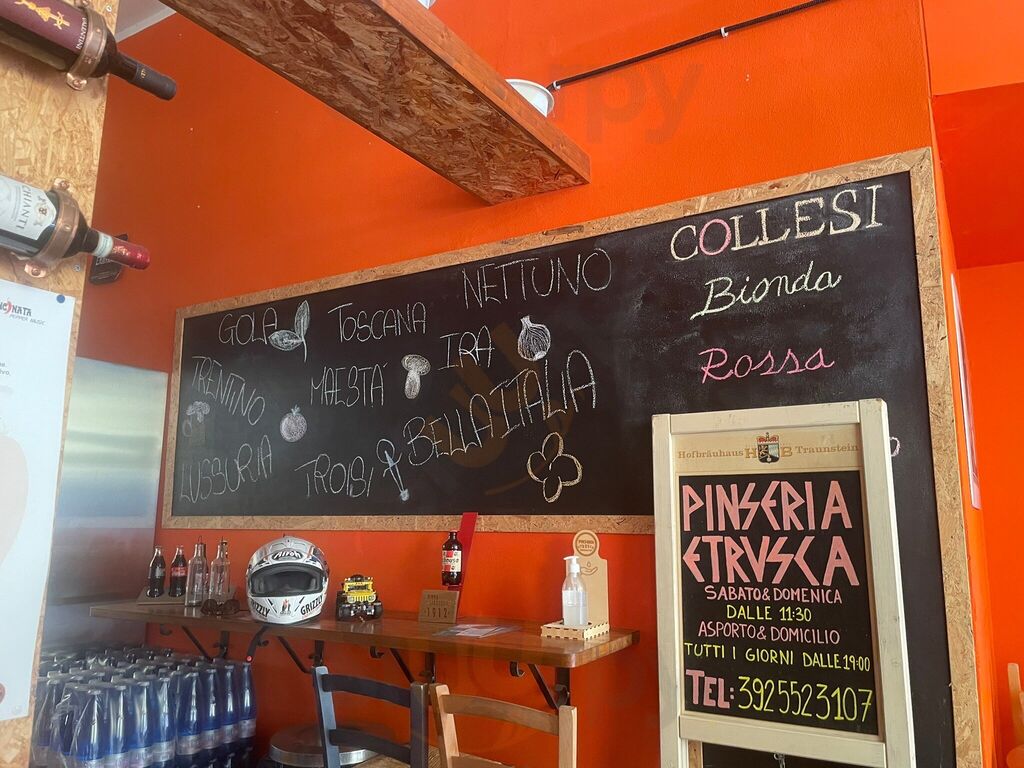 CHIANTI
GOLA
TOSCANA
NETTUNO
TRENTINO
MAESTÀ
IRA
LUSSURIA
TROISI
BELLA ITALIA
COLLESI
Bionda
Rossa
GRIZZLY
Hofbräuhaus HB Traunstein
PINSERIA
ETRUSCA
SABATO & DOMENICA
DALLE 11:30
ASPORTO & DOMICILIO
TUTTI I GIORNI DALLE 19:00
TEL: 3925523107